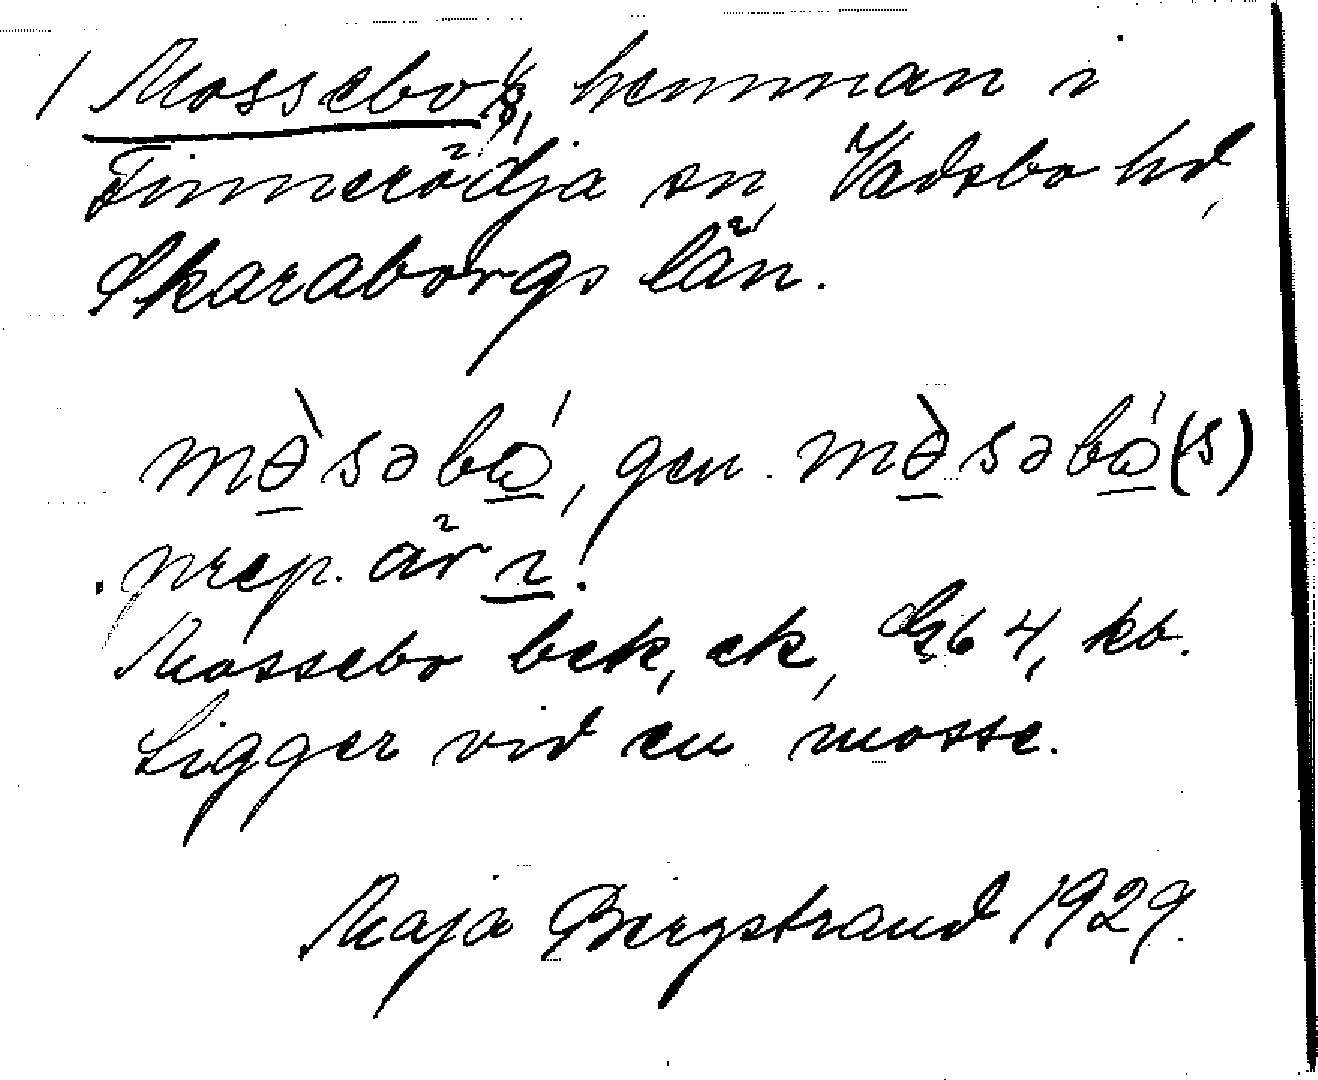 1 Mossebo, hemman i
Finnerödja sn, Vadsbo hd,
Skaraborgs län.
mə̀səbó, gen. mə̀səbó(s)
prep. är i.
Mossebo bek, ek, 64, kb.
Ligger vid en mosse.
Maja Bergstrand 1929.